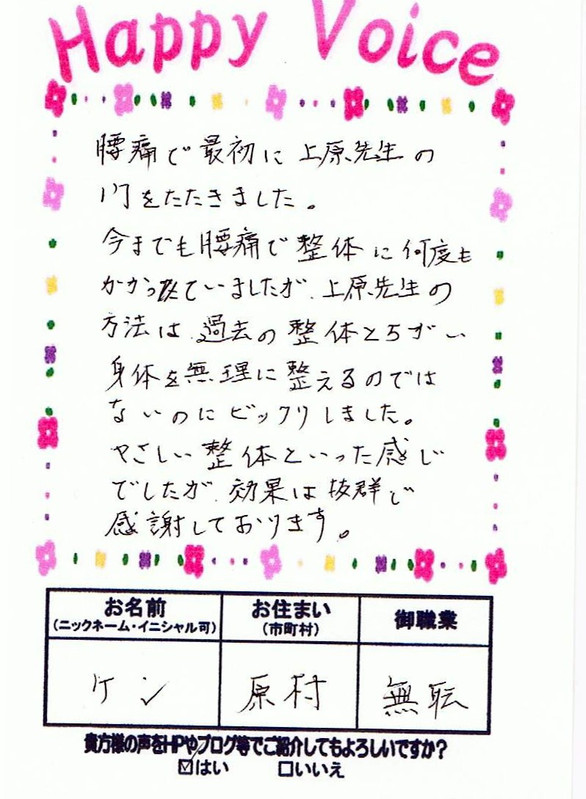 Happy Voice
腰痛で最初に上原先生の
門をたたきました。
今までも腰痛で整体に何度も
かかっていましたが、上原先生の
方法は過去の整体とちがい
身体を無理に整えるのでは
ないのにビックリしました。
やさしい整体といった感じ
でしたが、効果は抜群で
感謝しております。
お名前 お住まい 御職業
(ニックネーム・イニシャル可) (市町村)
ケン 原村 無転
貴方様の声をHPやブログ等でご紹介してもよろしいですか?
☑はい □いいえ